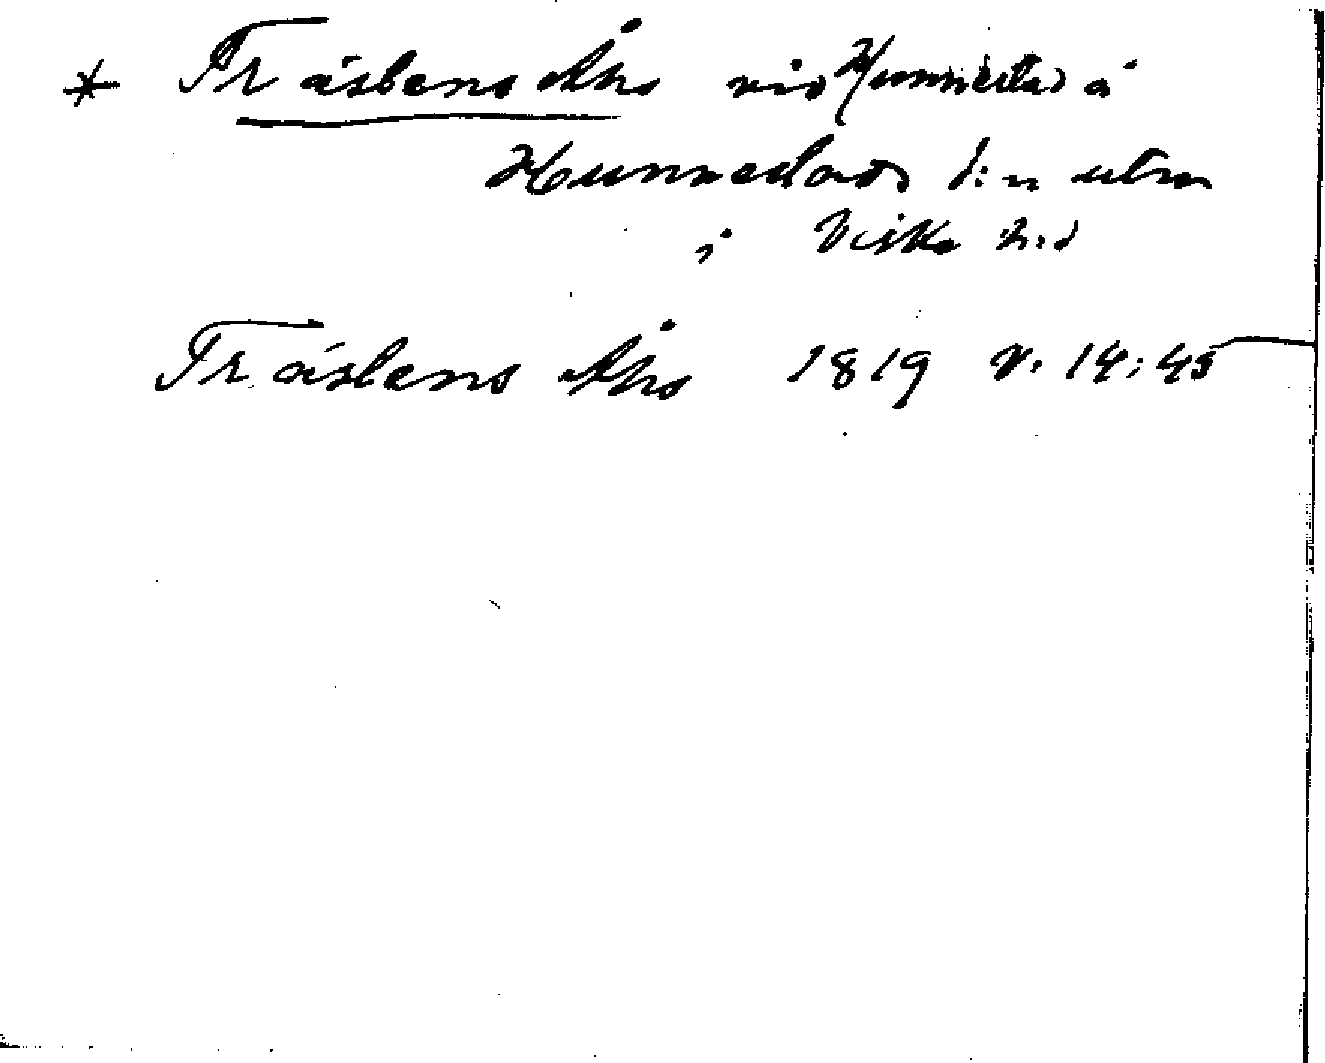 * Träsbens Åhs vid Hunnestad å
Hunnestads s:n utm
i Viske h:d
Träsbens Åhs 1819 v. 14:45